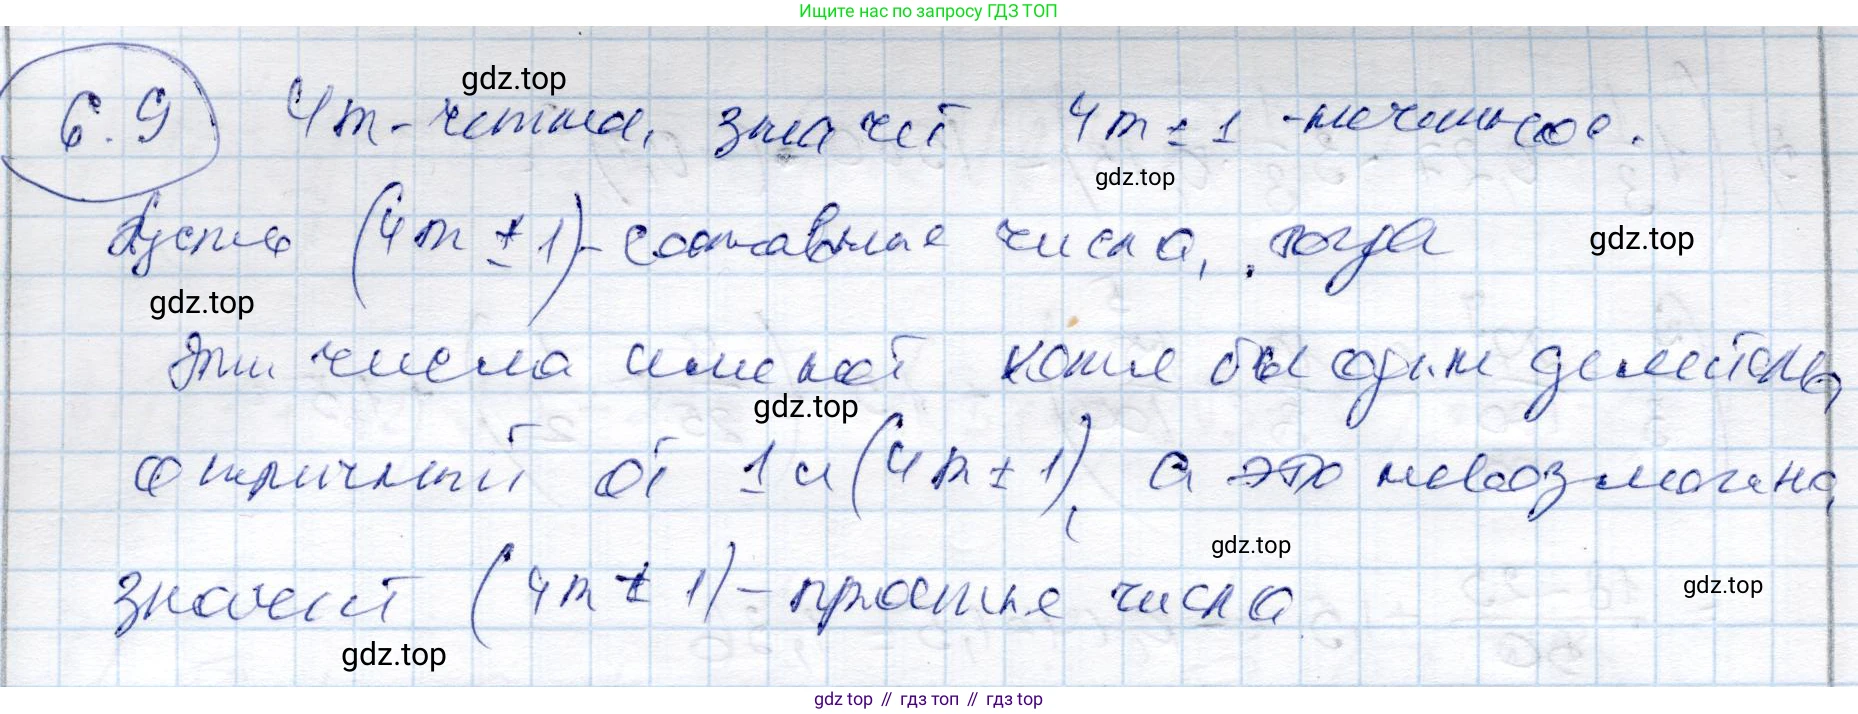 Ищите нас по запросу ГДЗ ТОП
gdz.top
6.9 4m - четные, значит 4m ± 1 - нечетное.
gdz.top
Пусть (4m ± 1) - составные числа, тогда
gdz.top
gdz.top
Эти числа имеют хотя бы один делитель,
gdz.top
отличный от 1 и (4m ± 1), а это невозможно,
gdz.top
значит (4m ± 1) - простые числа
gdz.top
gdz.top
gdz top // гдз топ // гдз top